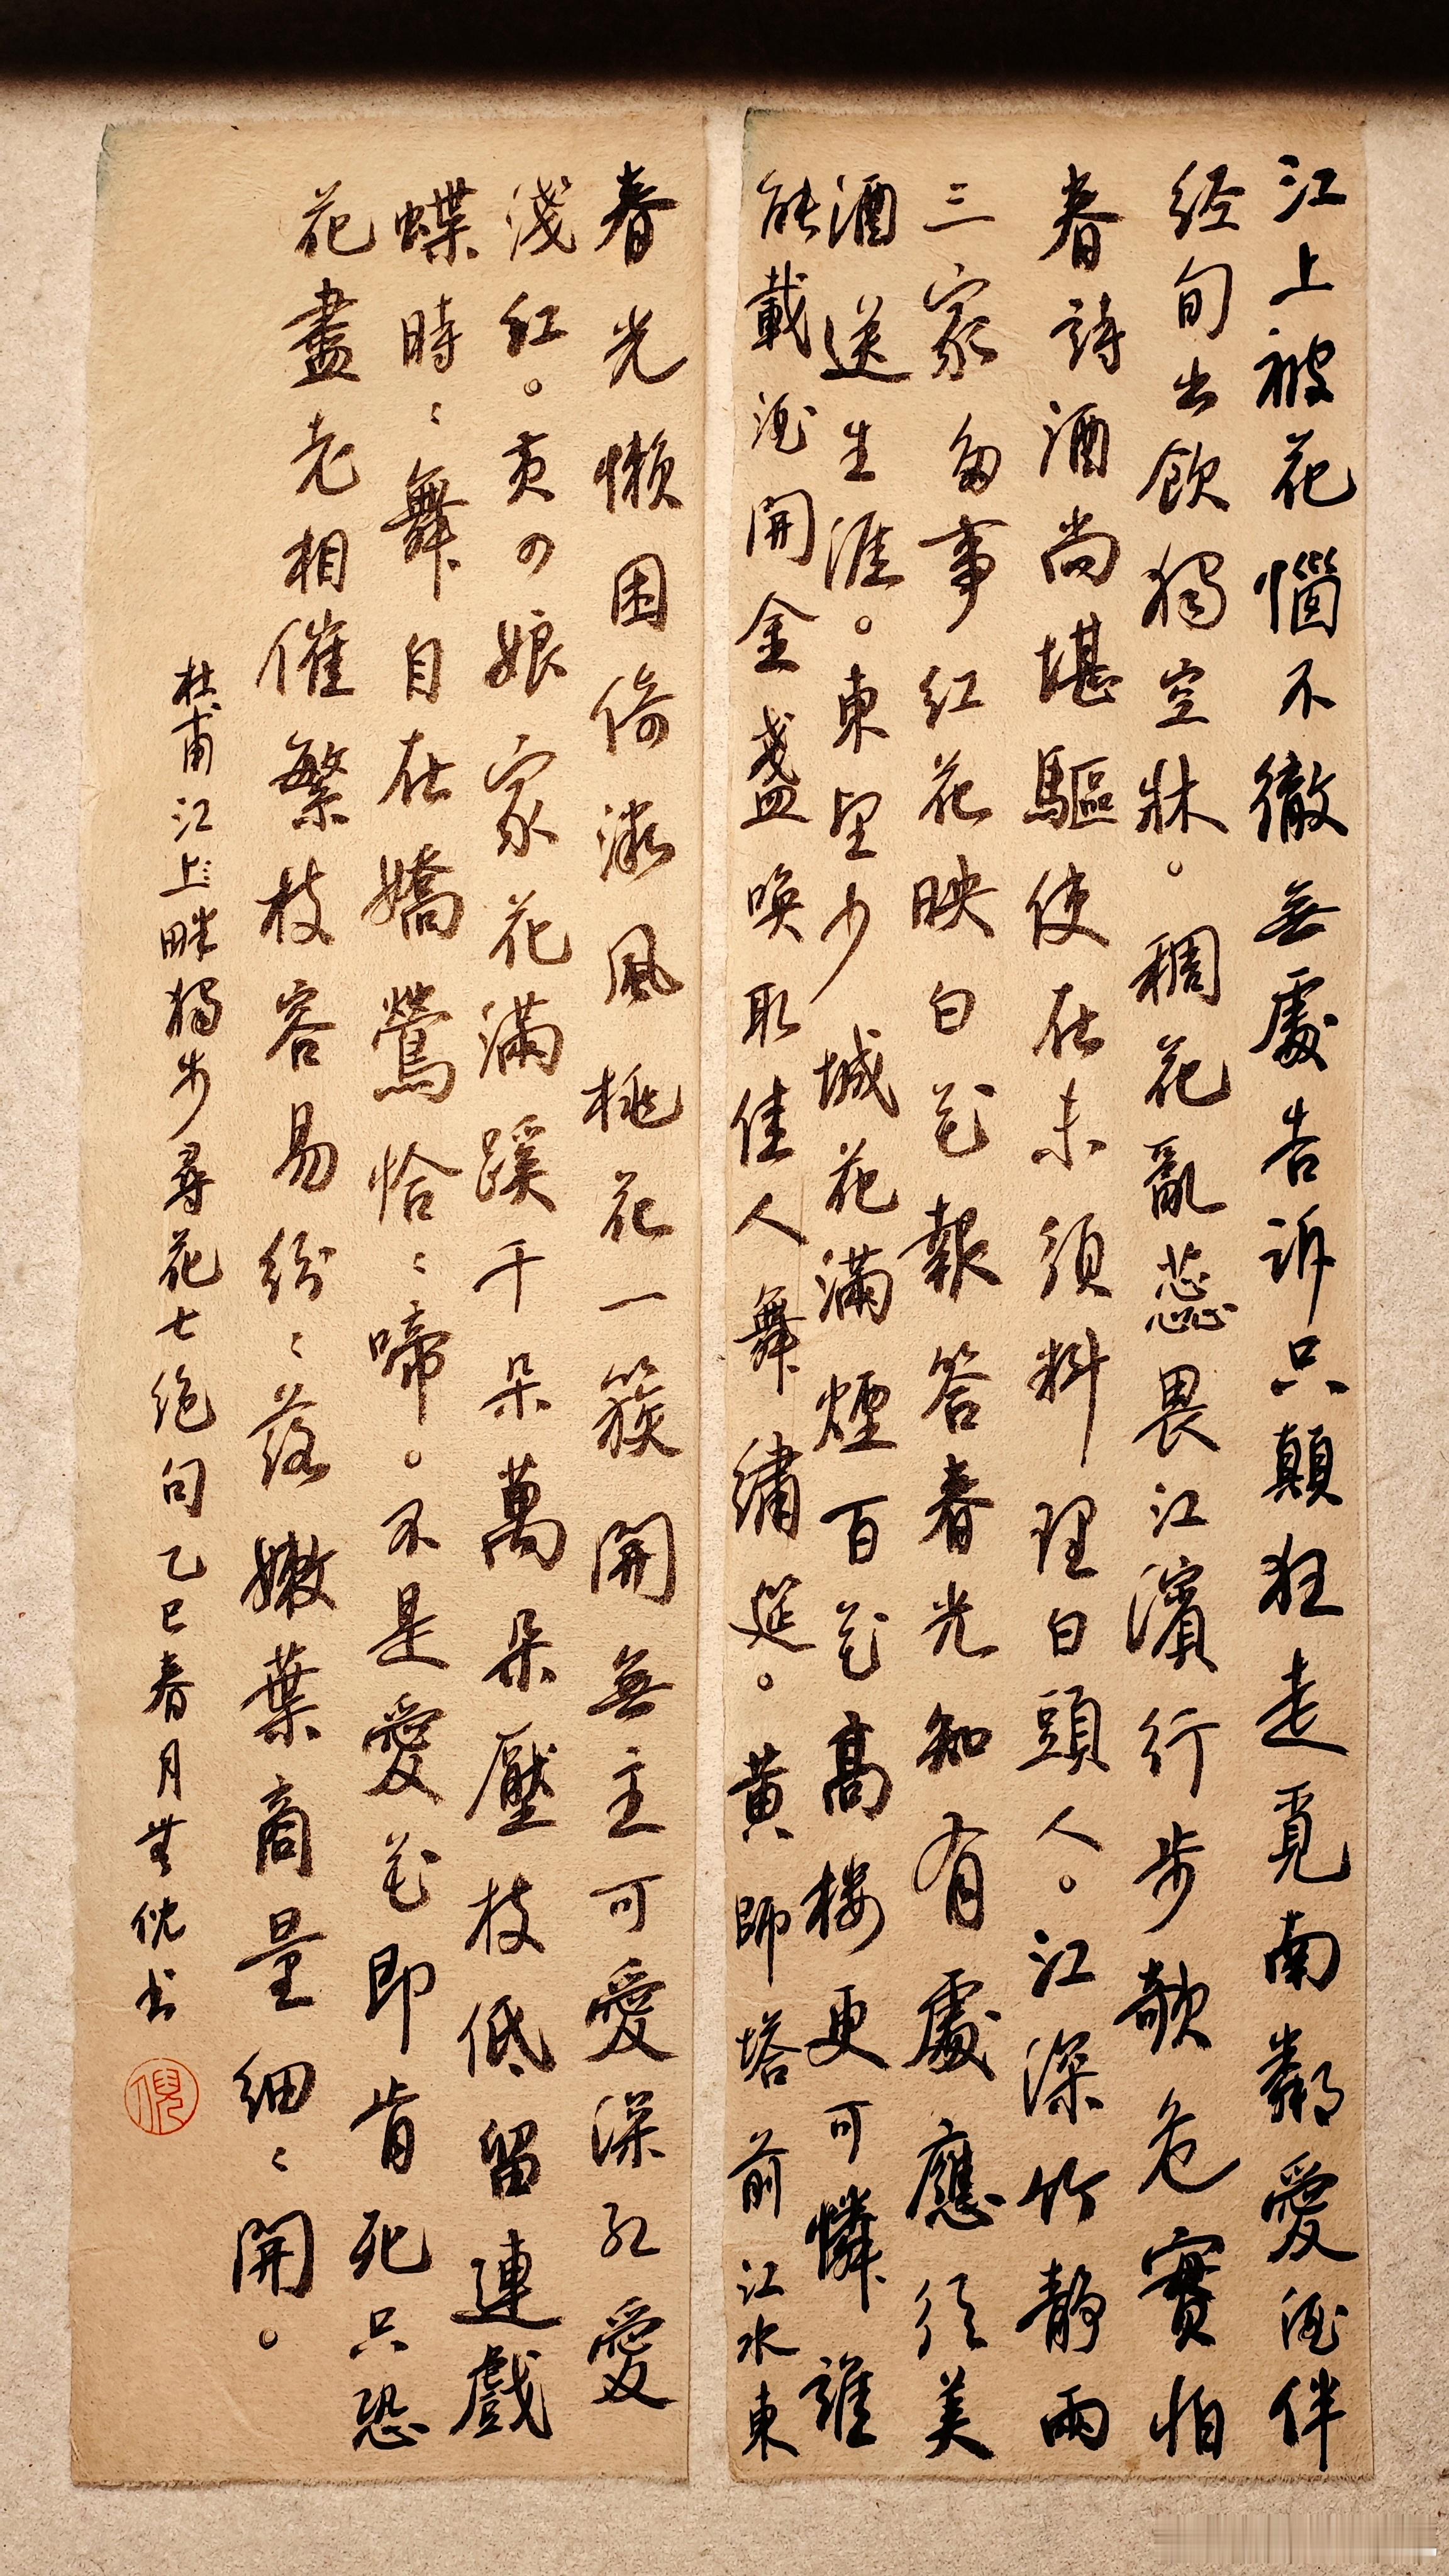 江上被花惱不徹無處告訴只顛狂走覓南鄰愛酒伴
经旬出飲獨空牀。稠花亂蕊畏江濱行步欹危實怕
春詩酒尚堪驅使在未須料理白頭人。江深竹靜兩
三家多事紅花映白花報答春光知有處應須美
酒送生涯。東望少城花滿煙百花高楼更可憐誰
能載酒開金盞喚取佳人舞繡筵。黄師塔前江水東
春光懶困倚微風桃花一簇開無主可愛深紅愛
淺紅。黄四娘家花滿蹊千朵萬朵壓枝低留連戲
蝶時〻舞自在嬌鶯恰〻啼。不是愛花即肯死只恐
花盡老相催繁枝容易紛〻落嫩葉商量細〻開。
杜甫江上畔獨步尋花七绝句乙巳春月無倪书
倪